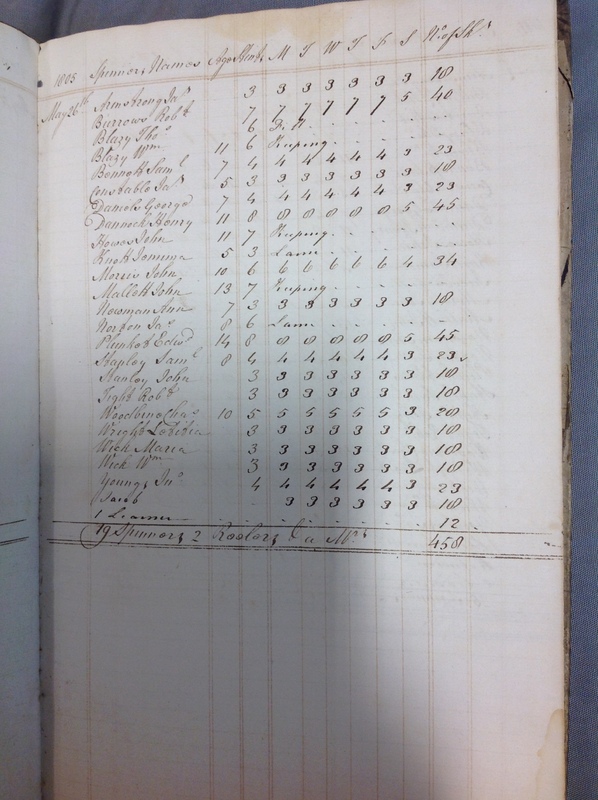 1805 Spinners Names Age Stent M T W T F S No of Shs
May 26th Armstrong Jas 3 3 3 3 3 3 3 18
Burrows Robt 7 7 7 7 7 7 5 40
Blazy Thos 6
Blazy Wm 11 6 Keeping
Bennett Saml 7 4 4 4 4 4 4 3 23
Constable Jas 5 3 3 3 3 3 3 3 18
Daniels George 7 4 4 4 4 4 4 3 23
Dannock Henry 11 8 8 8 8 8 8 5 45
Howes John 11 7 Keeping
Knott Jemima 5 3 Lame
Morris John 10 6 6 6 6 6 6 4 34
Mallett John 13 7 Keeping
Newman Ann 7 3 3 3 3 3 3 3 18
Norton Jas 8 6 Lame
Plunkett Edwd 14 8 8 8 8 8 8 5 45
Stapley Saml 8 4 4 4 4 4 4 3 23
Stanley John 3 3 3 3 3 3 3 18
Tight Robt 3 3 3 3 3 3 3 18
Woodbine Chas 10 5 5 5 5 5 5 3 28
Wright Letitia 3 3 3 3 3 3 3 18
Wick Maria 3 3 3 3 3 3 3 18
Wick Wm 3 3 3 3 3 3 3 18
Youngs Jno 4 4 4 4 4 4 3 23
Jacob 3 3 3 3 3 3 18
1 Learner 12
19 Spinners 2 Reelers & a Mrs 458